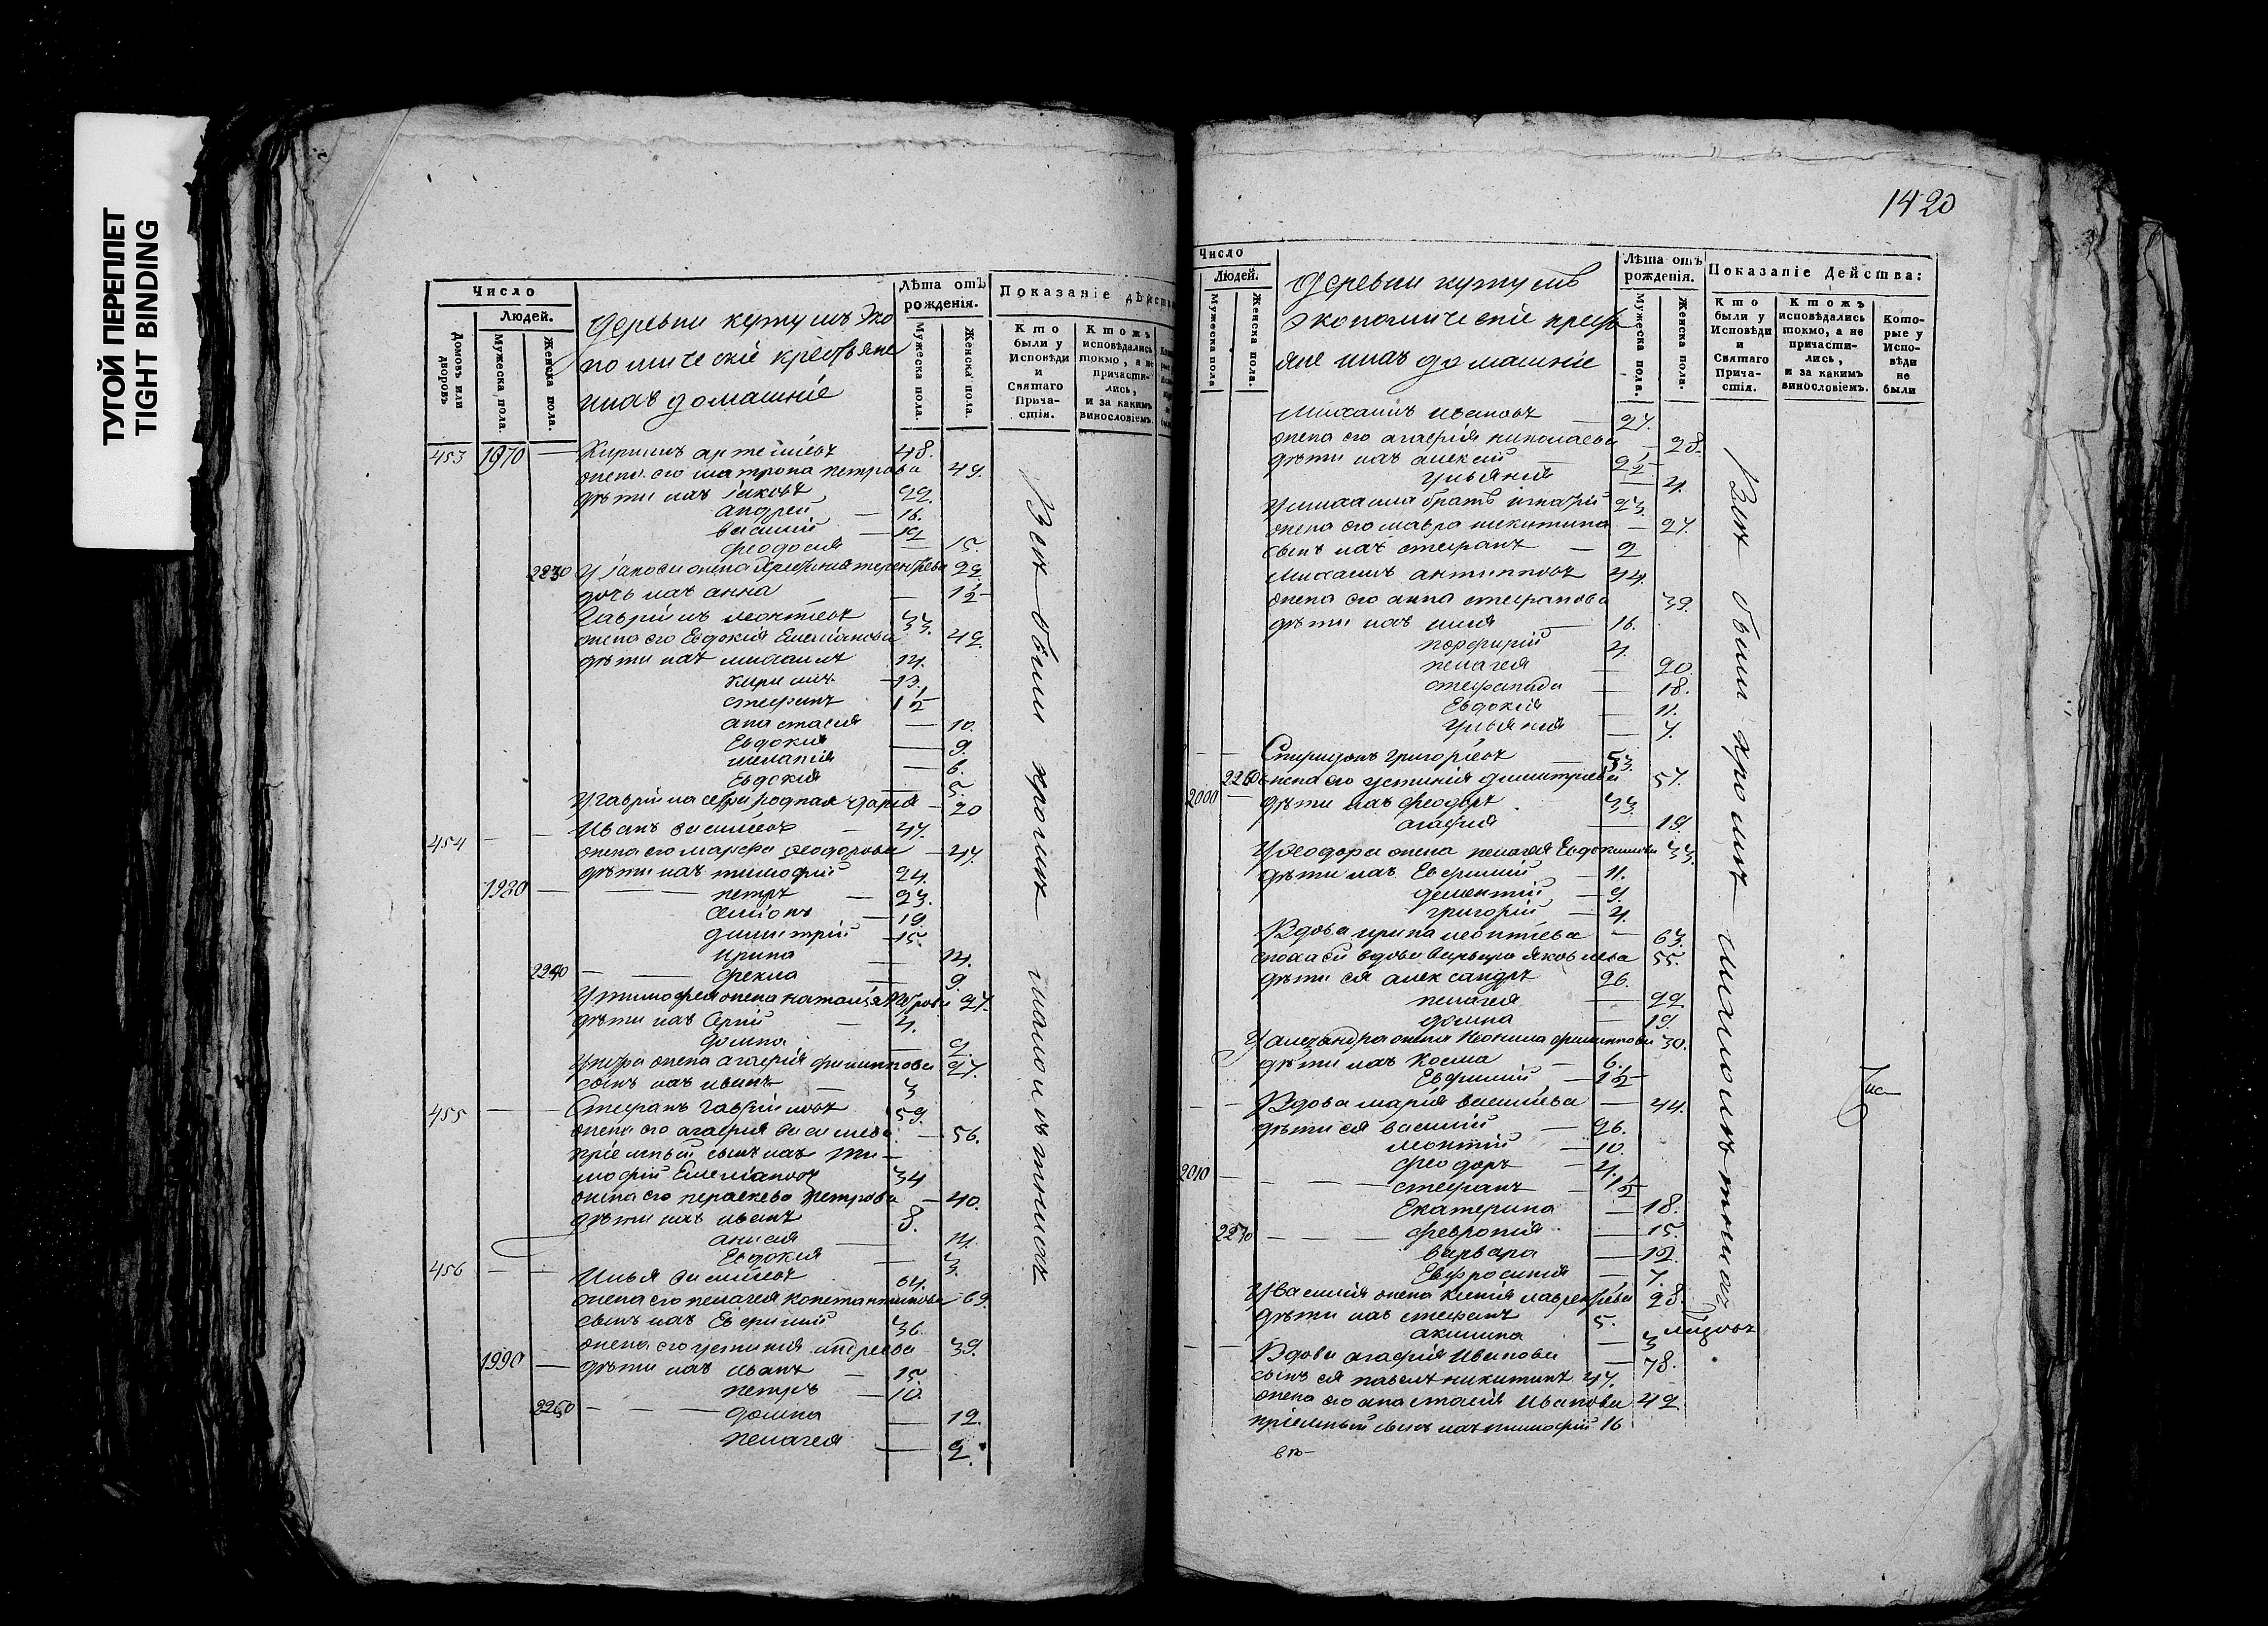 ТУГОЙ ПЕРЕПЛЕТ
TIGHT BINDING
Число
Людей.
Домовъ или дворовъ
Мужеска пола.
Женска пола.
деревни кутушъ Эко
номическіе крестьяне
ихъ домашніе
Лѣта отъ рождения.
Мужеска пола.
Женска пола.
Показаніе дѣйства
Кто были у Исповѣди и Святаго Прича-стія.
Ктожъ исповѣдались токмо, а не причасти-лись, и за какимъ винословіемъ.
453 1970 — Кирилъ артемьевъ 48.
жена его матрона петрова 49.
дѣти ихъ іаковъ 22.
андрей — 16.
василий — 12
феодосия — 15.
2230 У іакова жена терентьева 22.
дочь ихъ анна — 1 1/2
Гавриилъ леонтьевъ 33.
жена его Евдокия Емелианова 42.
дѣти ихъ михаилъ 14.
кирилъ — 13.
стефанъ 1 1/2
анастасия — 10.
Евдокия — 9.
мелания — 6.
Евдокия — 5.
У гавриила сестра родная дария — 20
454 — — Иванъ васильевъ — 47.
жена его марфа феодорова — 44.
дѣти ихъ тимофий 24.
1980 — петръ — 23.
семионъ — 19.
димитрий — 15.
ирина — 14.
2240 — фекла — 9.
У тимофея жена наталия петрова 27.
дѣти ихъ Сергий — 4.
домна — 2.
У петра жена агафия филиппова 27.
сынъ ихъ иванъ — 3
455 — — Стефанъ гавриловъ 59.
жена его агафия васильева — 56.
приемный сынъ ихъ ти-
мофий Емелиановъ 34
жена его параскева петрова — 40.
дѣти ихъ иванъ 8.
анисия — 14.
Евдокия — 3.
456 — — Илья васильевъ 64.
жена его пелагея константинова 69.
сынъ ихъ Ефимий 36.
жена его устиния андреева 39.
1990 — дѣти ихъ иванъ — 15.
петръ — 10.
2250 — домна — 12.
пелагея — 2.
Всѣ были кромѣ малолѣтнихъ
1420
Число
Людей.
Мужеска пола
Женска пола.
деревни кутушъ
экономическіе кресть
яне ихъ домашніе
Лѣта отъ рожденія.
Мужеска пола.
Женска пола.
Показаніе Действа:
Кто были у Исповѣди и Святаго Прича-стія.
Ктожъ исповѣдались токмо, а не причасти-лись, и за какимъ винословіемъ.
Кото-рые у Испо-вѣди не были
Михаилъ ивановъ — 27.
жена его агафия николаева — 28.
дѣти ихъ алексий 2 1/2
ульяния — 4.
У михаила братъ игнатий 23
жена его мавра никитина — 27.
сынъ ихъ стефанъ — 2
Михаилъ антиповъ 44.
жена его анна стефанова 39.
дѣти ихъ илия 16.
порфирий 4.
пелагея — 20.
стефанида — 18.
Евдокия — 11.
Ульяния — 7.
— — Спиридонъ григорьевъ — 53.
2260 жена его устиния димитриева 57.
2000 — дѣти ихъ феодоръ 33.
агафия — 19.
У феодора жена пелагея Евдокимова 33.
дѣти ихъ Ефимий — 11.
дементий — 9.
григорий — 4.
Вдова ирина леонтьева — 63.
сноха ей вдова варвара яковлева 55.
дѣти ея александръ 26.
пелагея — 22
домна — 19.
У александра жена филиппова 30.
дѣти ихъ Косма — 6.
Ефимий — 1 1/2
— — Вдова мария васильева — 44.
дѣти ея василий — 26.
леонтий — 10.
феодоръ — 4.
2010 — стефанъ — 1 1/2
Екатерина — 18.
2270 — феврония — 15.
варвара — 12.
Евфросиния — 7.
У василия жена лаврентьева 28.
дѣти ихъ стефанъ 5.
акилина — 3
— — Вдова агафия Иванова — 78.
сынъ ея павелъ никитинъ 47.
жена его анастасия иванова 42
приемный сынъ ихъ тимофий 16
Всѣ были кромѣ малолѣтнихъ